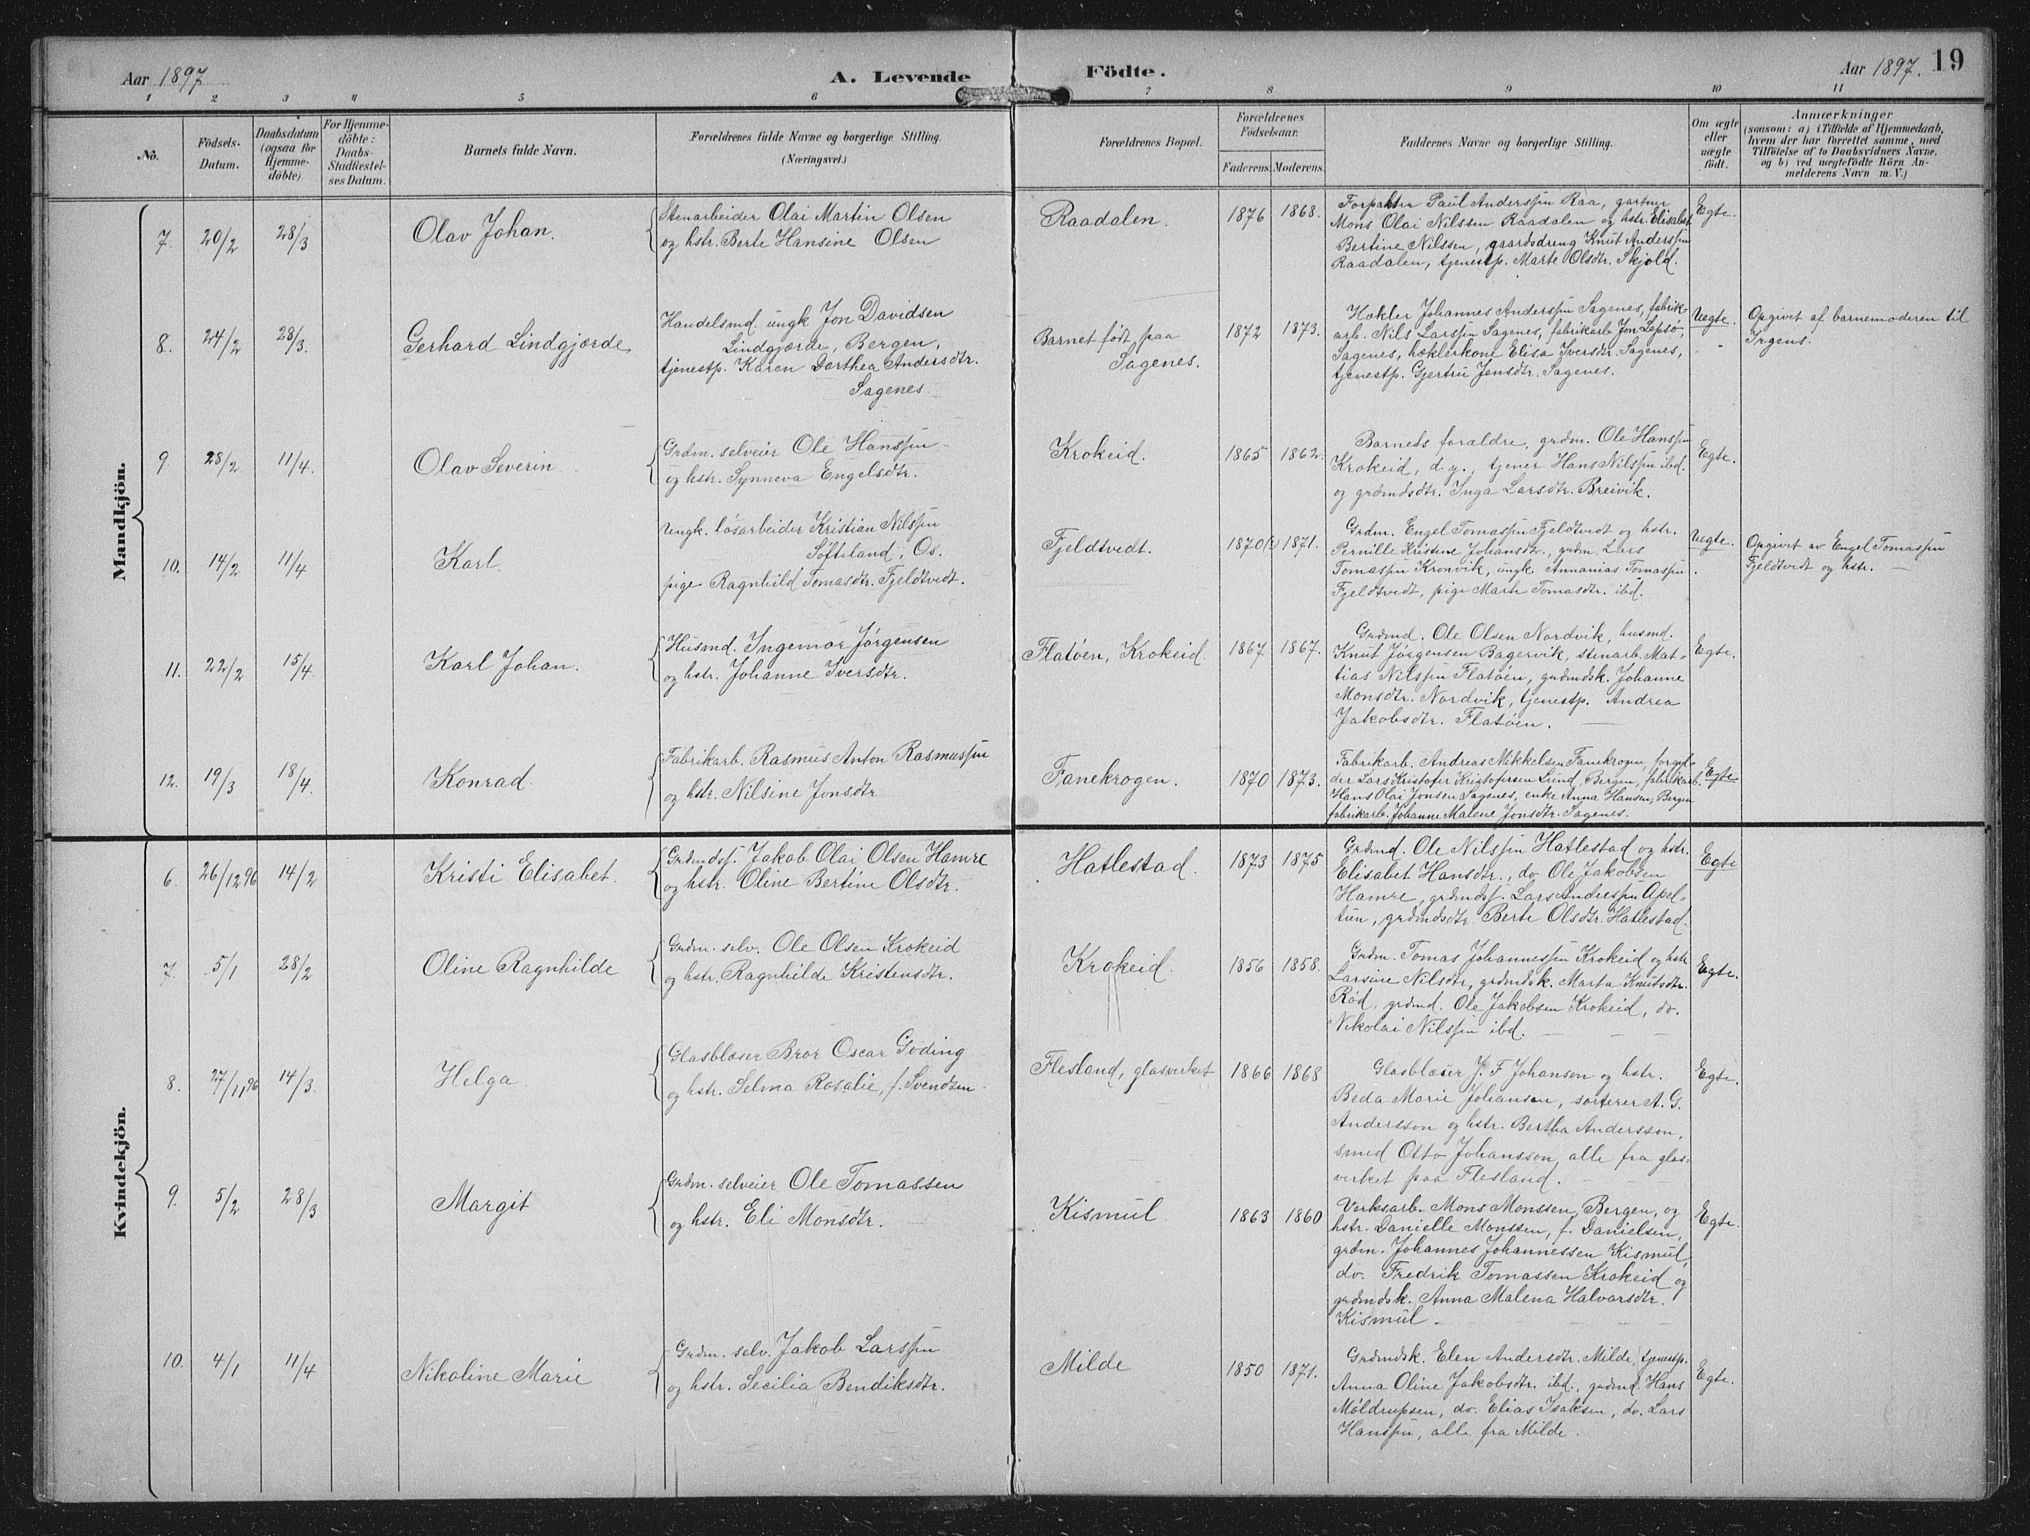 Aar 1897
A. Levende
Födte.
Aar 1897.
19
1 2 3 4 5 6 7 8 9 10 11
No.
Födsels-
Datum.
Daabsdatum
(ogsaa for
Hjemme-
döbte).
For Hjemme-
döbte:
Daabs-
Stadfæstel-
ses Datum.
Barnets fulde Navn.
Forældrenes fulde Navne og borgerlige Stilling.
(Næringsvei.)
Forældrenes Bopæl.
Forældrenes
Födselsaar.
Faderens.
Moderens.
Faddernes Navne og borgerlige Stilling.
Om ægte
eller
uægte
födt.
Anmærkninger
(saasom: a) i Tilfælde af Hjemmedaab,
hvem der har forrettet samme, med
Tilföielse af to Daabsvidners Navne.
og b) ved uægtefödte Börn An-
melderens Navn m. V.)
Mandkjön.
7. 20/2 28/3 Olav Johan.
Stenarbeider Olai Martin Olsen
og hstr. Berte Hansine Olsen
Raadalen. 1876 1868.
Forpakter Paul Anderssen Raa, gartner
Mons Olai Nilssen Raadalen og hstr. Elisabet
Bertine Nilssen, gaardsdreng Knut Anderssen
Raadalen, tjenestp. Marte Olsdtr. Skjold.
Egte.
8. 24/2 28/3. Gerhard Lindgjærde
Handelsmd. ungk Jon Davidsen
Lindgjærde, Bergen,
tjenestp. Karen Dorthea Andersdtr.
Sagenes
Barnet født paa
Sagenes.
1872 1873.
Hækler Johannes Anderssen Sagenes, fabrik-
arb. Nils Larssen Sagenes, fabrikarb. Jon Lepsø,
Sagenes, hæklerkone Elisa Iversdtr. Sagenes,
tjenestp. Gjertru Jensdtr. Sagenes.
Uegte.
Opgivet af barnemoderen til
Irgens.
9 28/2 11/4. Olav Severin
Grdm. selveier Ole Hanssen
og hstr. Synneva Engelsdtr.
Krokeid. 1865 1862.
Barnets forældre, grdm. Ole Hanssen
Krokeid, d. y., tjener Hans Nilssen ibd.
og grdmdsdtr. Inga Larsdtr. Breivik.
Egte.
10. 14/2 11/4 Karl.
Ungk. løsarbeider Kristian Nilssen
Søfteland, Os.
pige Ragnhild Tomasdtr. Fjeldtvedt.
Fjeldtvedt. 1870(?) 1871.
Grdm. Engel Tomassen Fjeldtvedt og hstr.
Pernille Kristene Johansdtr., grdm. Lars
Tomassen Kronvik, ungk. Annanias Tomassen
Fjeldtvedt, pige Marte Tomasdtr. ibd.
Uegte.
Opgivet av Engel Tomassen
Fjeldtvedt og hstr.
11. 22/2 15/4. Karl Johan.
Husmd. Ingemar Jørgensen
og hstr. Johanne Iversdtr.
Flatøen, Krokeid. 1867 1867.
Grdmd. Ole Olsen Nordvik, husmd.
Knut Jørgensen Bagervik, stenarb. Mat-
tias Nilssen Flatøen, grdmdsk. Johanne
Monsdtr. Nordvik, tjenestp. Andrea
Jakobsdtr. Flatøen.
Egte.
12. 19/3 18/4. Konrad.
Fabrikarb. Rasmus Anton Rasmussen
og hstr. Nilsine Jonsdtr
Fanekrogen. 1870 1873.
Fabrikarb. Andreas Mikkelsen Fanekrogen, forgyl-
der Lars Kristofer Kristofersen Lund, Bergen, fabrikarb.
Hans Olai Jonsen Sagenes, enke Anna Hansen, Bergen
fabrikarb. Johanne Malene Jonsdtr. Sagenes.
Egte
Kvindekjön.
6. 26/12 96 14/2 Kristi Elisabet.
Grdmdsf. Jakob Olai Olsen Hamre
og hstr. Oline Bertine Olsdtr.
Hatlestad. 1873 1875
Grdmd. Ole Nilssen Hatlestad og hstr.
Elisabet Hansdtr., do. Ole Jakobsen
Hamre, grdmdsf. Lars Anderssen Apel-
tun, grdmdsdtr Berte Olsdtr. Hatlestad.
Egte
7. 5/1 28/2 Oline Ragnhilde
Grdm. selv. Ole Olsen Krokeid
og hstr. Ragnhilde Kristensdtr.
Krokeid. 1856 1858.
Grdm. Tomas Johannessen Krokeid og hstr
Larsine Nilsdtr, grdmdsk. Marta Knutsdtr.
Rød, grdmd. Ole Jakobsen Krokeid, do.
Nikolai Nilssen ibd.
Egte.
8. 27/1, 96 14/3. Helga.
Glasblæser Bror Oscar Goding
og hstr. Selma Rosalie, f. Svendsen
Flesland, glasverket 1866 1868
Glasblæser J. F. Johanson og hstr.
Beda Marie Johanson, sorterer A. G.
Andersson og hstr. Bertha Andersson,
smed Otto Johansson, alle fra glas-
verket paa Flesland.
Egte.
9. 5/2 28/3 Margit
Grdm. selveier Ole Tomassen
og hstr. Eli Monsdtr.
Kismul. 1863 1860
Verksarb. Mons Monssen, Bergen, og
hstr. Danielle Monssen, f. Danielsen,
grdm. Johannes Johannessen Kismul,
do. Fredrik Tomassen Krokeid og
grdmdsk. Anna Malena Halvarsdtr.
Kismul.
Egte.
10. 4/1 11/4 Nikoline Marie
Grdm. selv. Jakob Larssen
og hstr. Secilia Bendiksdtr.
Milde 1850 1871.
Grdmdsk. Elen Andersdtr. Milde, tjenestp.
Anna Oline Jakobsdtr. ibd., grdmd. Hans
Møldrupsen, do. Elias Isaksen, do. Lars
Hanssen, alle fra Milde.
Egte.